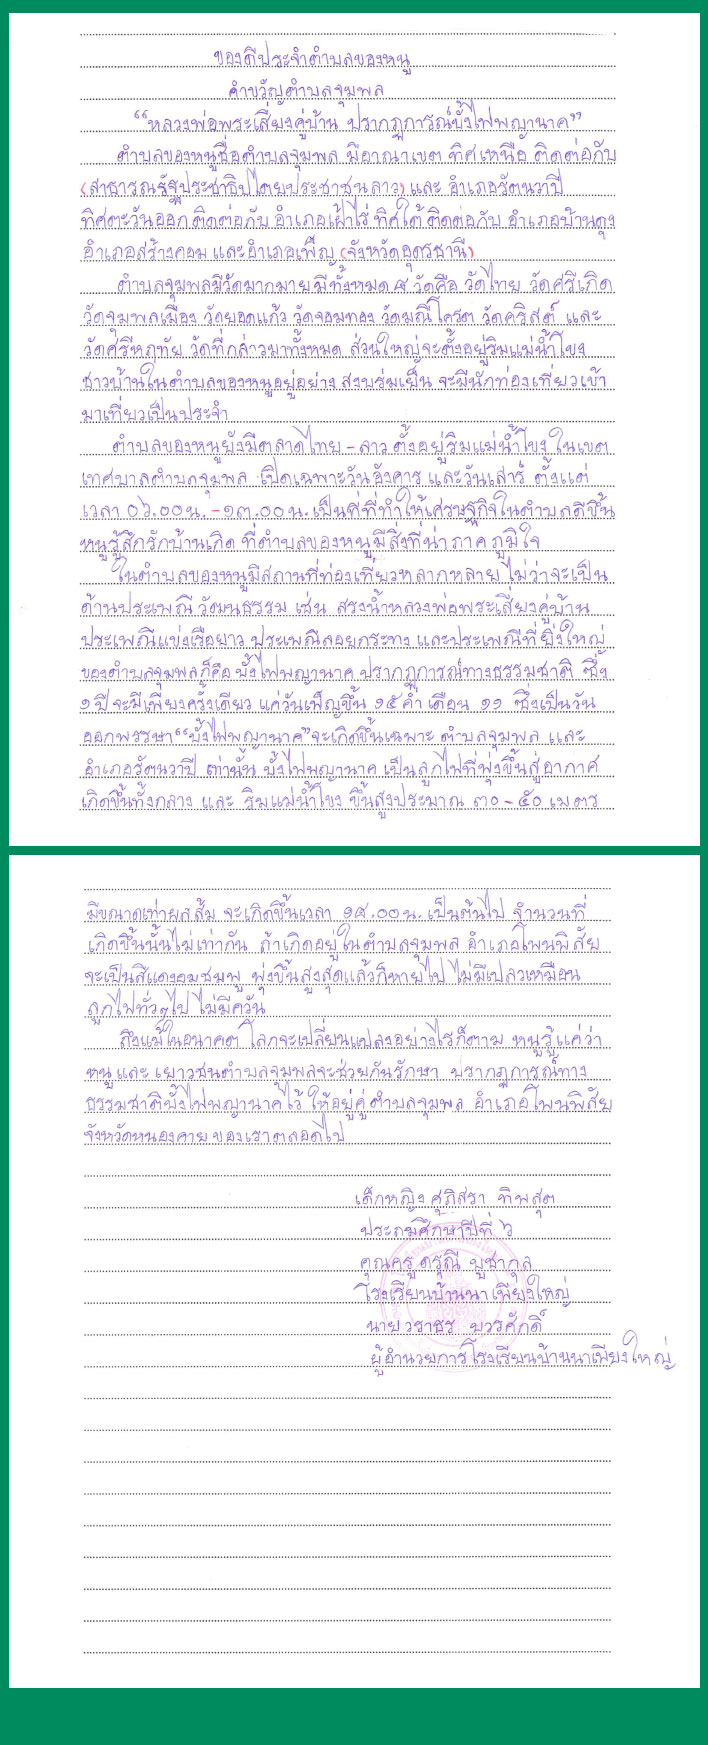 ของดีประจำตำบลของหนู
คำขวัญตำบลจุมพล
“หลวงพ่อพระเสี่ยงคู่บ้าน ปรากฏการณ์บั้งไฟพญานาค”
ตำบลของหนูชื่อตำบลจุมพล มีอาณาเขต ทิศเหนือ ติดต่อกับ
(สาธารณรัฐประชาธิปไตยประชาชนลาว) และ อำเภอรัตนวาปี
ทิศตะวันออก ติดต่อกับ อำเภอเฝ้าไร่ ทิศใต้ ติดต่อกับ อำเภอบ้านดุง
อำเภอสร้างคอม และอำเภอเพ็ญ (จังหวัดอุดรธานี)
ตำบลจุมพลมีวัดมากมาย มีทั้งหมด ๘ วัดคือ วัดไทย วัดศรีเกิด
วัดจุมพลเมือง วัดยอดแก้ว วัดจอมทอง วัดมณีโครต วัดคริสต์ และ
วัดศรีหฤทัย วัดที่กล่าวมาทั้งหมด ส่วนใหญ่จะตั้งอยู่ริมแม่น้ำโขง
ชาวบ้านในตำบลของหนูอยู่อย่าง สงบร่มเย็น จะมีนักท่องเที่ยวเข้า
มาเที่ยวเป็นประจำ
ตำบลของหนูยังมีตลาดไทย - ลาว ตั้งอยู่ริมแม่น้ำโขง ในเขต
เทศบาลตำบลจุมพล เปิดเฉพาะวันอังคาร และวันเสาร์ ตั้งแต่
เวลา ๐๖.๐๐ น. - ๑๓.๐๐ น. เป็นที่ที่ทำให้เศรษฐกิจในตำบลดีขึ้น
หนูรู้สึกรักบ้านเกิด ที่ตำบลของหนูมีสิ่งที่น่าภาคภูมิใจ
ในตำบลของหนูมีสถานที่ท่องเที่ยวหลากหลาย ไม่ว่าจะเป็น
ด้านประเพณี วัฒนธรรม เช่น สรงน้ำหลวงพ่อพระเสี่ยงคู่บ้าน
ประเพณีแข่งเรือยาว ประเพณีลอยกระทง และประเพณีที่ยิ่งใหญ่
ของตำบลจุมพลก็คือ บั้งไฟพญานาค ปรากฏการณ์ทางธรรมชาติ ซึ่ง
๑ ปี จะมีเพียงครั้งเดียว แค่วันเพ็ญขึ้น ๑๕ ค่ำ เดือน ๑๑ ซึ่งเป็นวัน
ออกพรรษา “บั้งไฟพญานาค” จะเกิดขึ้นเฉพาะ ตำบลจุมพล และ
อำเภอรัตนวาปี เท่านั้น บั้งไฟพญานาค เป็นลูกไฟที่พุ่งขึ้นสู่อากาศ
เกิดขึ้นทั้งกลาง และ ริมแม่น้ำโขง ขึ้นสูงประมาณ ๓๐ - ๕๐ เมตร
มีขนาดเท่าผลส้ม จะเกิดขึ้นเวลา ๑๘.๐๐ น. เป็นต้นไป จำนวนที่
เกิดขึ้นนั้นไม่เท่ากัน ถ้าเกิดอยู่ในตำบลจุมพล อำเภอโพนพิสัย
จะเป็นสีแดงอมชมพู พุ่งขึ้นสูงสุดแล้วก็หายไป ไม่มีเปลวเหมือน
ลูกไฟทั่วๆไป ไม่มีควัน
ถึงแม้ในอนาคต โลกจะเปลี่ยนแปลงอย่างไรก็ตาม หนูรู้แค่ว่า
หนูและ เยาวชนตำบลจุมพลจะช่วยกันรักษา ปรากฏการณ์ทาง
ธรรมชาติบั้งไฟพญานาคไว้ ให้อยู่คู่ ตำบลจุมพล อำเภอโพนพิสัย
จังหวัดหนองคาย ของเราตลอดไป
เด็กหญิง ศุภิสรา ทิพสุต
ประถมศึกษาปีที่ ๖
คุณครู ดรุณี บูชากุล
โรงเรียนบ้านนาเพียงใหญ่
นาย วราธร บวรศักดิ์
ผู้อำนวยการโรงเรียนบ้านนาเพียงใหญ่